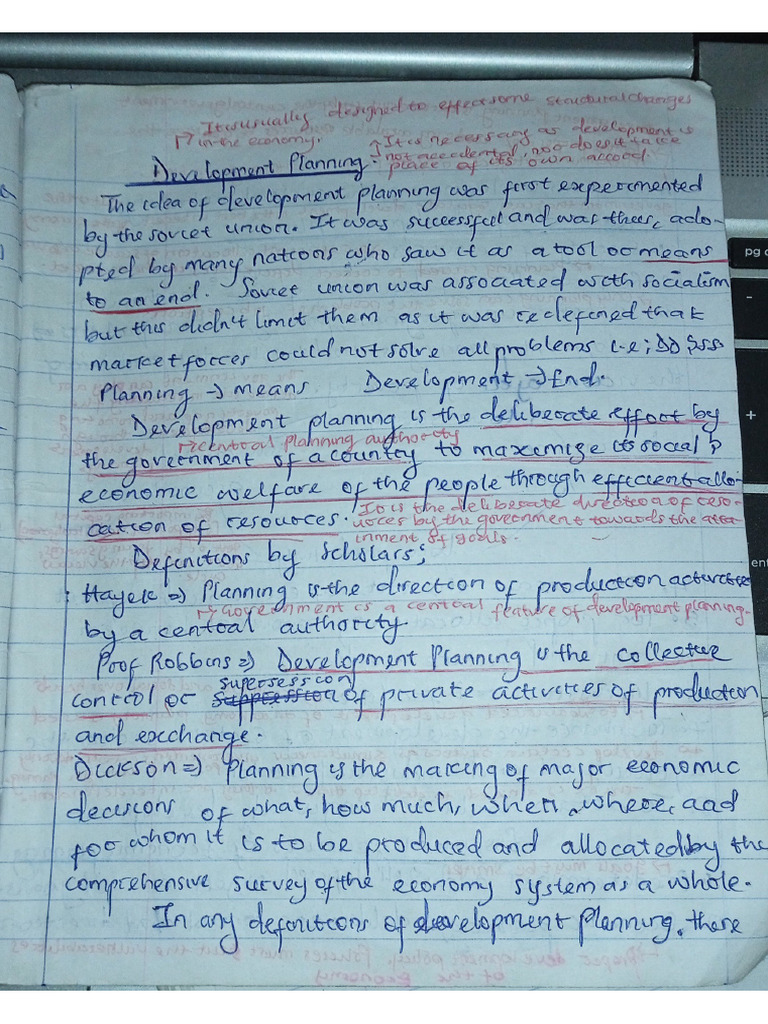 It is usually designed to effect some structural changes
in the economy.
It is necessary as development is
not accidental, nor does it take
place of its own accord.
Development Planning:-
The idea of development planning was first experimented
by the soviet union. It was successful and was thus, ado-
pted by many nations who saw it as a tool or means
to an end. Soviet union was associated with socialism
but this didn't limit them as it was redefined that
market forces could not solve all problems i.e; DD & SS
Planning → means. Development → End.
Development planning is the deliberate effort by
→ central planning authority
the government of a country to maximize its social &
economic welfare of the people through efficient allo-
cation of resources. It is the deliberate direction of reso-
urces by the government towards the atta-
inment of goals.
Definitions by Scholars;
Hayek ⇒ Planning is the direction of production activities
→ Government is a central feature of development planning.
by a central authority.
Prof Robbins ⇒ Development Planning is the collective
supersession
control or suppression of private activities of production
and exchange.
Dickson ⇒ Planning is the making of major economic
decisions of what, how much, when, where, and
for whom it is to be produced and allocated by the
comprehensive survey of the economy system as a whole.
In any definitions of development planning, there
pg
-
+